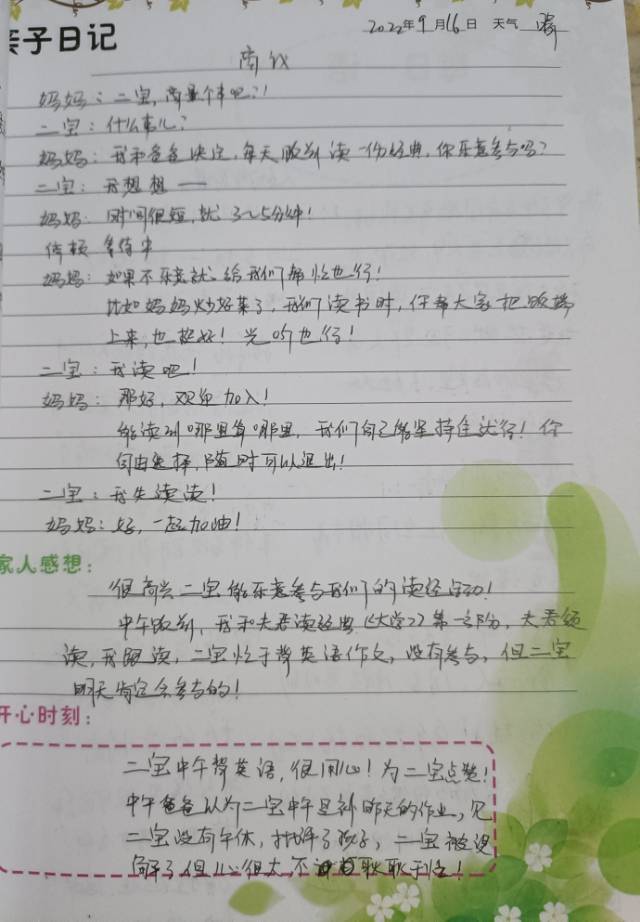 亲子日记
2022年9月16日 天气 晴
商议
妈妈：二宝，商量个事吧？！
二宝：什么事儿？
妈妈：我和爸爸决定，每天饭前读一份经典，你乐意参与吗？
二宝：我想想——
妈妈：时间很短，就3~5分钟！
停顿 等待中
妈妈：如果不乐意就给我们帮忙也行！
比如妈妈炒好菜了，我们读书时，你帮大家把饭端
上来，也挺好！光听也行！
二宝：我读吧！
妈妈：那好，欢迎加入！
能读到哪里算哪里，我们自己能坚持住就行！你
自由选择，随时可以退出！
二宝：我先读读！
妈妈：好，一起加油！
家人感想：
很高兴二宝能乐意参与我们的读经活动！
中午饭前，我和夫君读经典《大学》第一部分，夫君领
读，我跟读，二宝忙于背英语作文，没有参与，但二宝
明天肯定会参与的！
开心时刻：
二宝中午背英语，很用心！为二宝点赞！
中午爸爸以为二宝中午是补昨天的作业，见
二宝没有午休，批评了孩子，二宝被误
解了但心很大，不